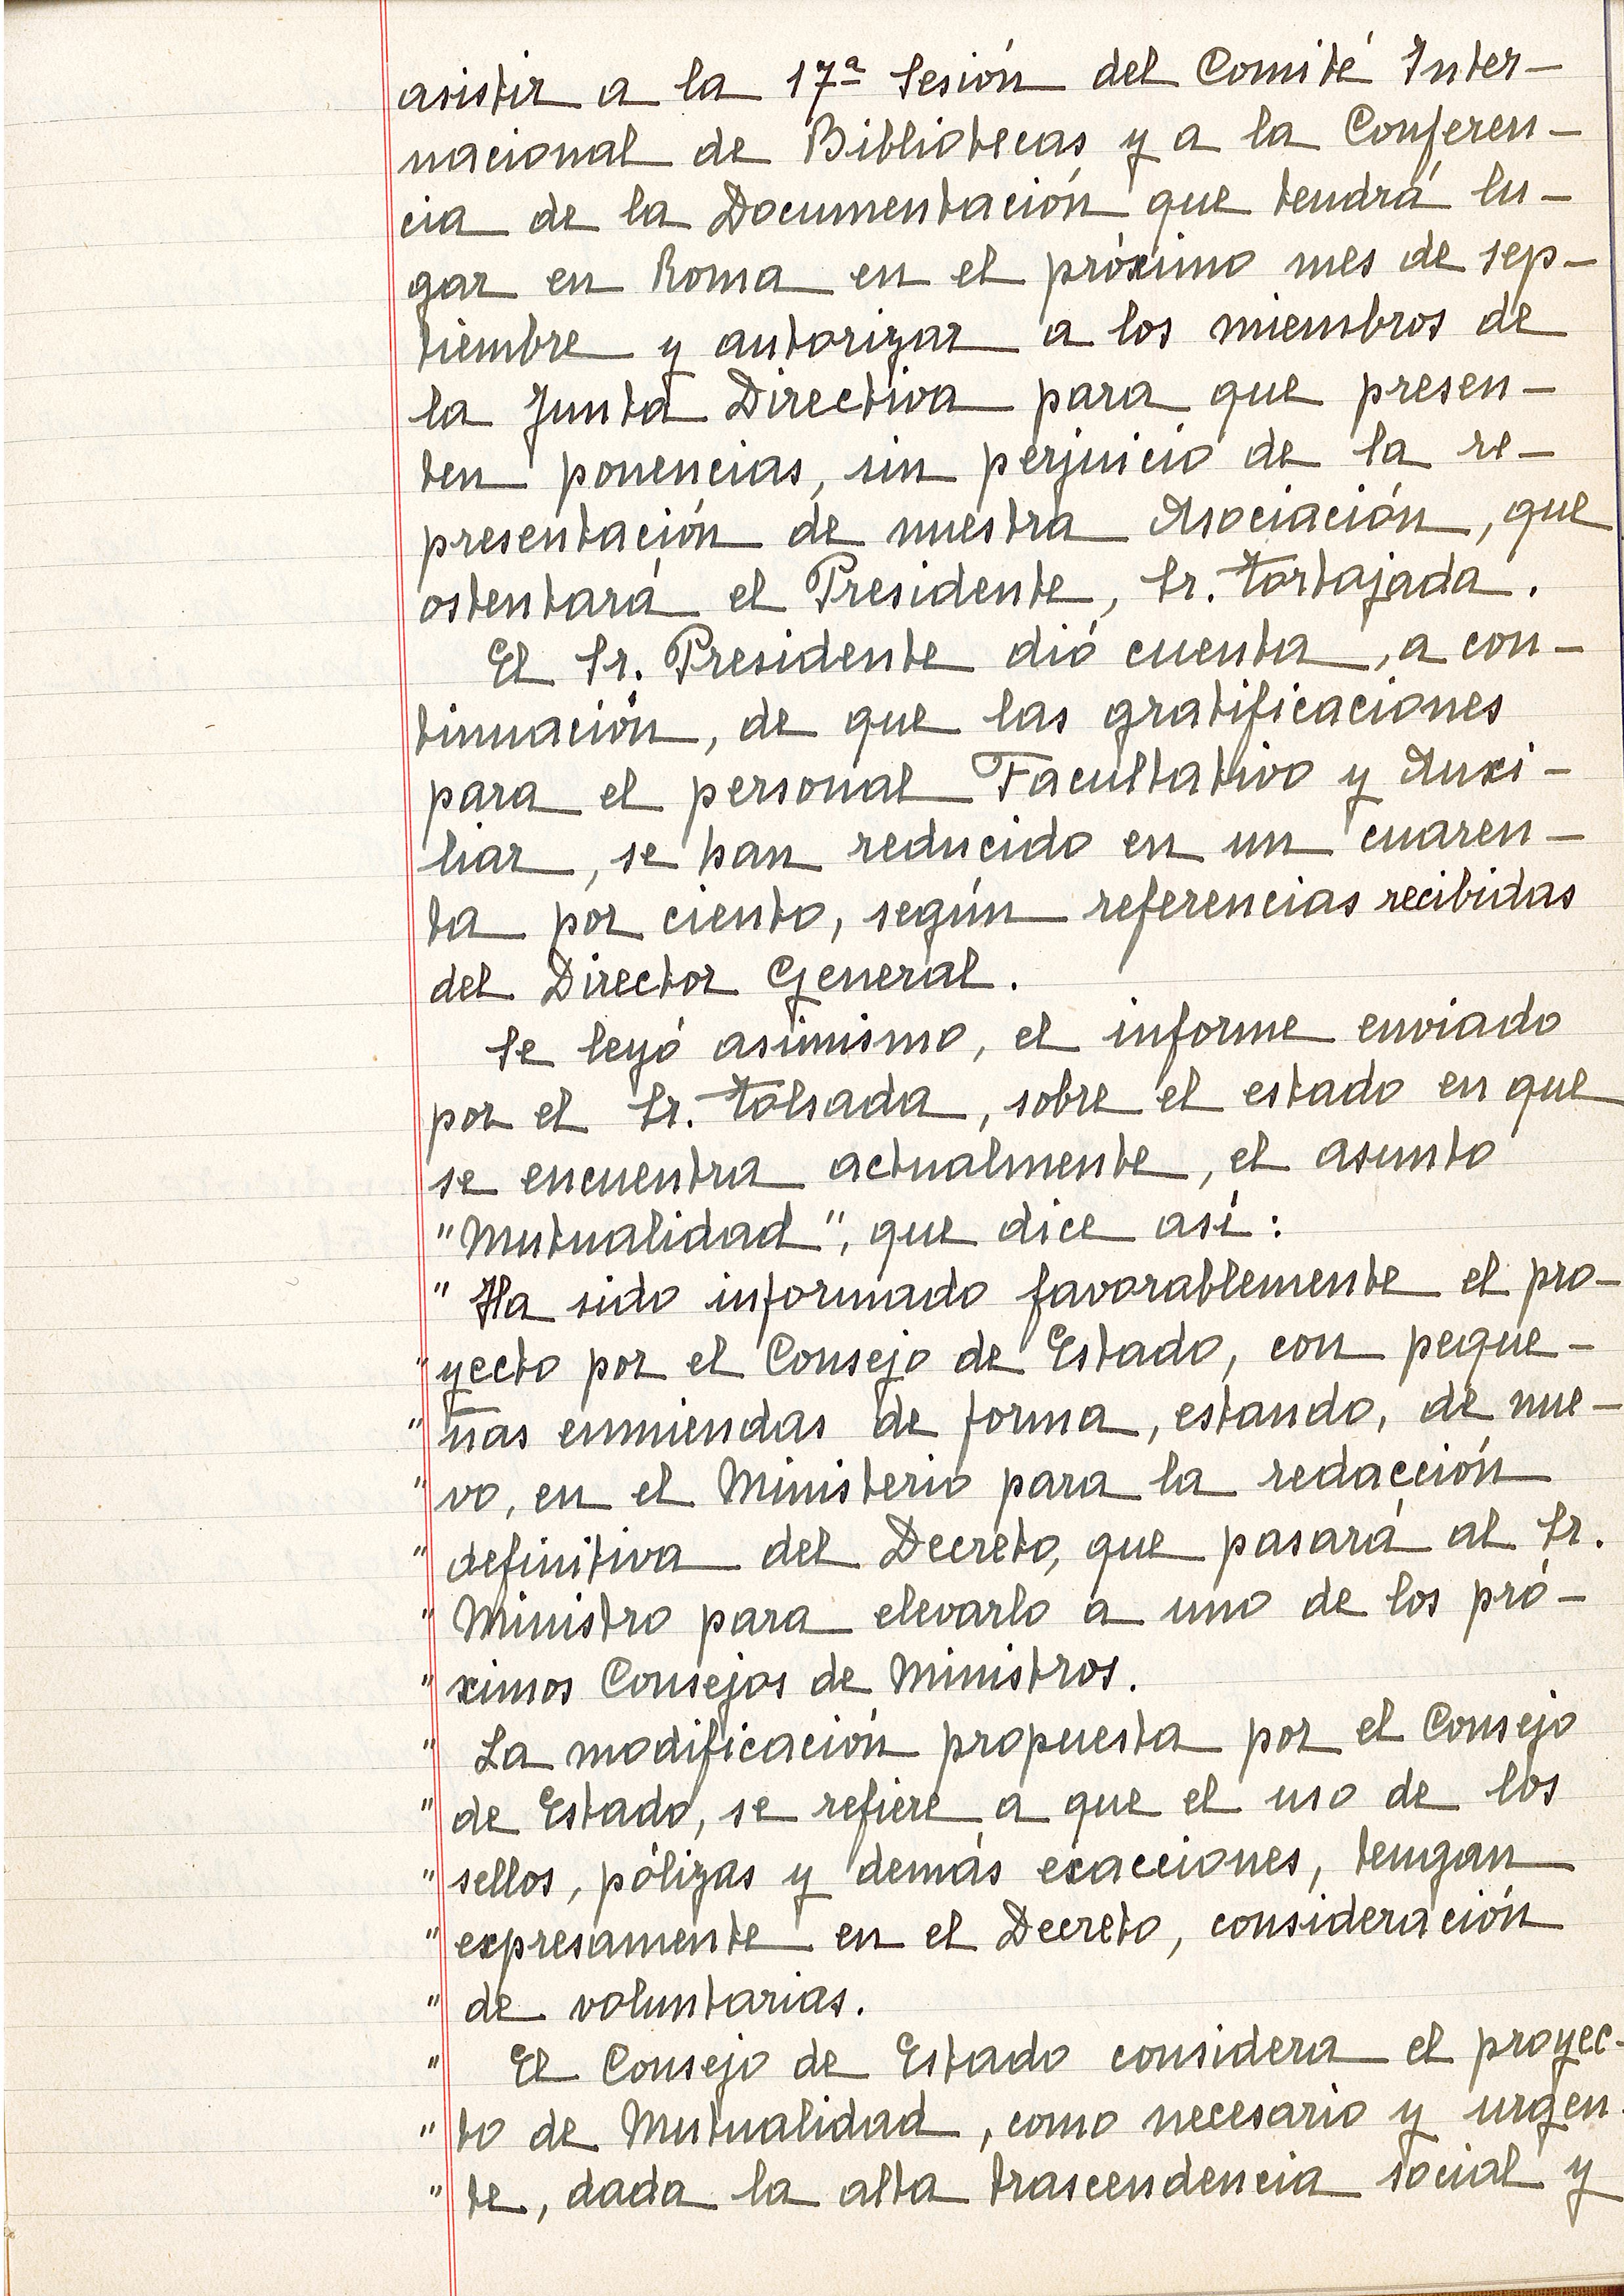 asistir a la 17ª Sesión del Comité Inter-
nacional de Bibliotecas y a la Conferen-
cia de la Documentación que tendrá lu-
gar en Roma en el próximo mes de sep-
tiembre y autorizar a los miembros de
la Junta Directiva para que presen-
ten ponencias, sin perjuicio de la re-
presentación de nuestra Asociación, que
ostentará el Presidente, Sr. Tortajada.
El Sr. Presidente dió cuenta, a con-
tinuación, de que las gratificaciones
para el personal Facultativo y Auxi-
liar, se han reducido en un cuaren-
ta por ciento, según referencias recibidas
del Director General.
Se leyó asimismo, el informe enviado
por el Sr. Tolsada, sobre el estado en que
se encuentra actualmente, el asunto
"Mutualidad", que dice así:
" Ha sido informado favorablemente el pro-
" yecto por el Consejo de Estado, con peque-
" ñas enmiendas de forma, estando, de nue-
" vo, en el Ministerio para la redacción
" definitiva del Decreto, que pasará al Sr.
" Ministro para elevarlo a uno de los pró-
" ximos Consejos de Ministros.
" La modificación propuesta por el Consejo
" de Estado, se refiere a que el uso de los
" sellos, pólizas y demás exacciones, tengan
" expresamente en el Decreto, consideración
" de voluntarias.
" El Consejo de Estado considera el proyec-
" to de Mutualidad, como necesario y urgen-
" te, dada la alta trascendencia social y